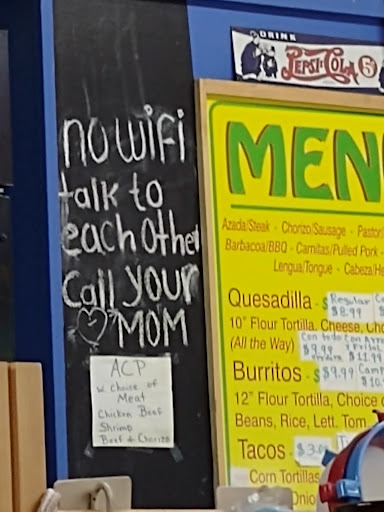 no wifi
talk to
each other
call your
MOM
ACP
w. choice of
Meat
Chicken Beef
Shrimp
Beef & Chorizo
DRINK
PEPSI:COLA 5¢
MEN
Azada/Steak - Chorizo/Sausage - Pastor
Barbacoa/BBQ - Carnitas/Pulled Pork -
Lengua/Tongue - Cabeza/He
Quesadilla - $ Regular $8.99
10" Flour Tortilla, Cheese, Cho
(All the Way) $9.99 $11.99
Burritos - $ $9.99
12" Flour Tortilla, Choice o
Beans, Rice, Lett. Tom
Tacos - $3.
Corn Tortillas
Onio